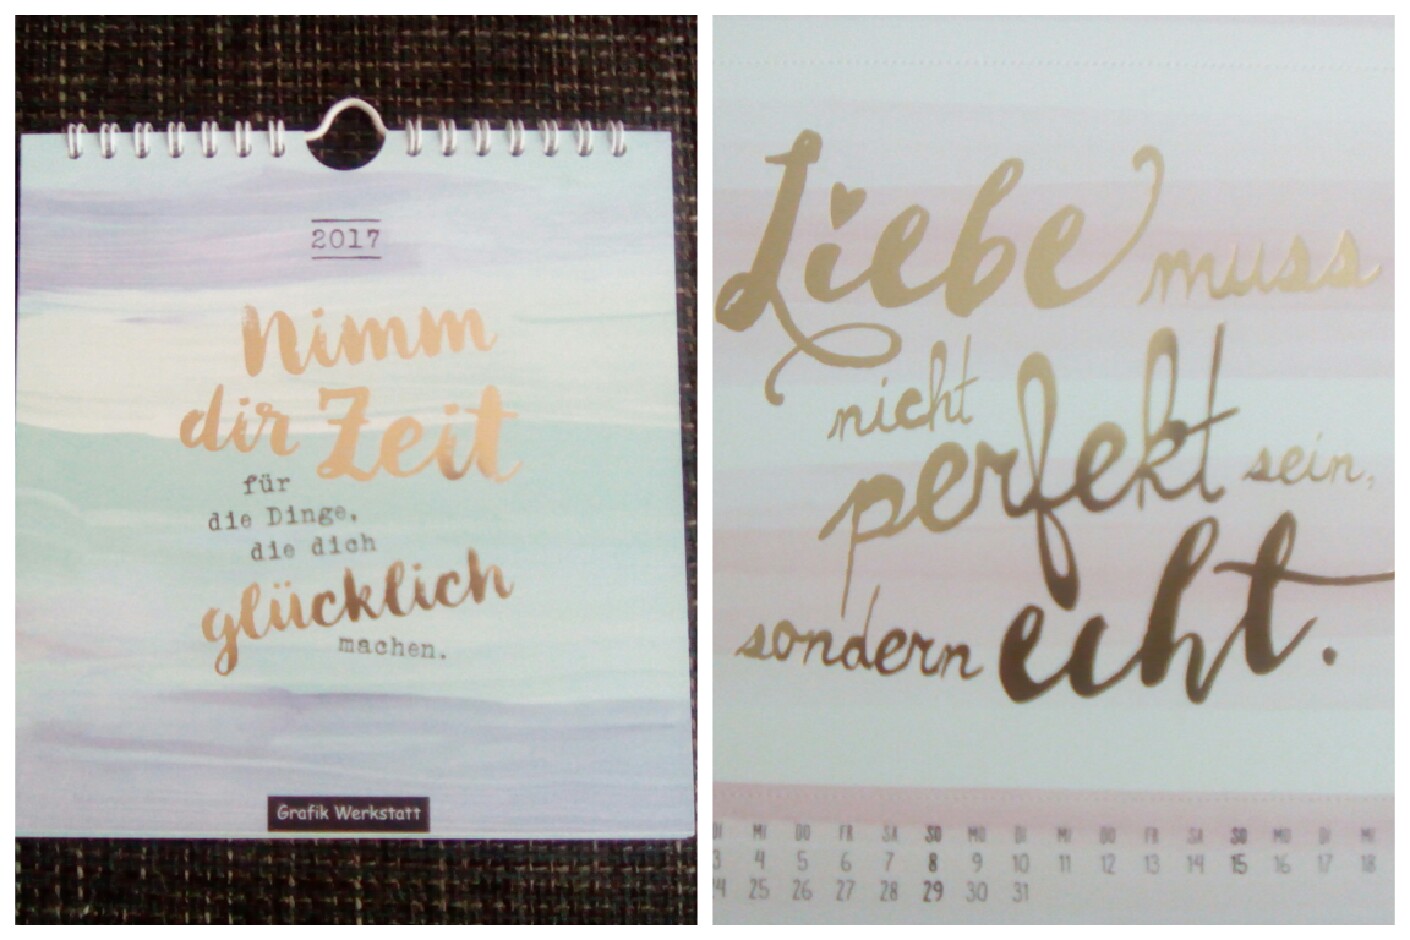 2017
Nimm
dir Zeit
für
die Dinge,
die dich
glücklich
machen.
Grafik Werkstatt
Liebe muss
nicht
perfekt sein,
sondern echt.
DI MI DO FR SA SO MO DI MI DO FR SA SO MO DI MI
3 4 5 6 7 8 9 10 11 12 13 14 15 16 17 18
24 25 26 27 28 29 30 31